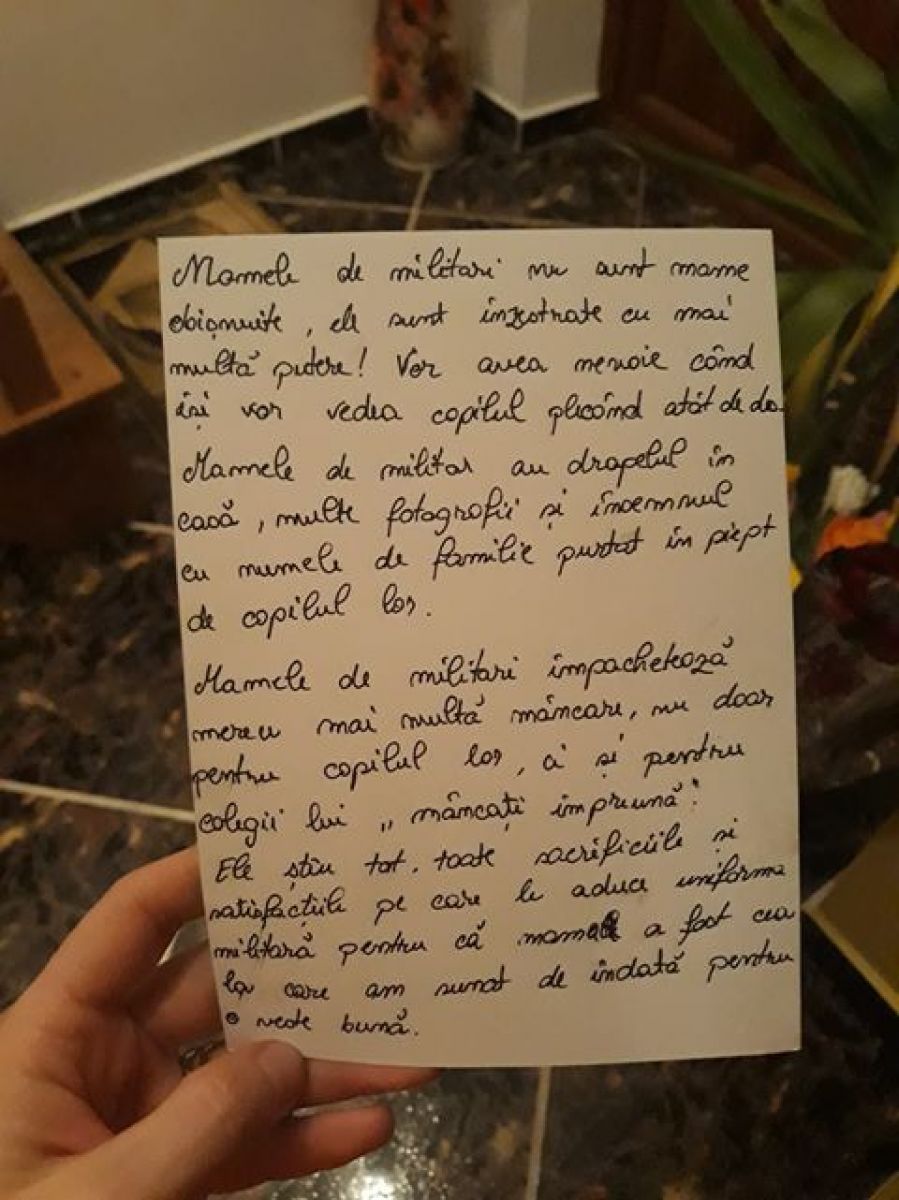 Mamele de militari nu sunt mame
obișnuite, ele sunt înzestrate cu mai
multă putere! Vor avea nevoie când
își vor vedea copilul plecând atât de des
Mamele de militar au drapelul în
casă, multe fotografii și însemnul
cu numele de familie purtat în piept
de copilul lor.
Mamele de militari împachetează
mereu mai multă mâncare, nu doar
pentru copilul lor, ci și pentru
colegii lui „mâncați împreună"
Ele știu tot. toate sacrificiile și
satisfacțiile pe care le aduce uniforma
militară pentru că mama a fost cea
la care am sunat de îndată pentru
o veste bună.